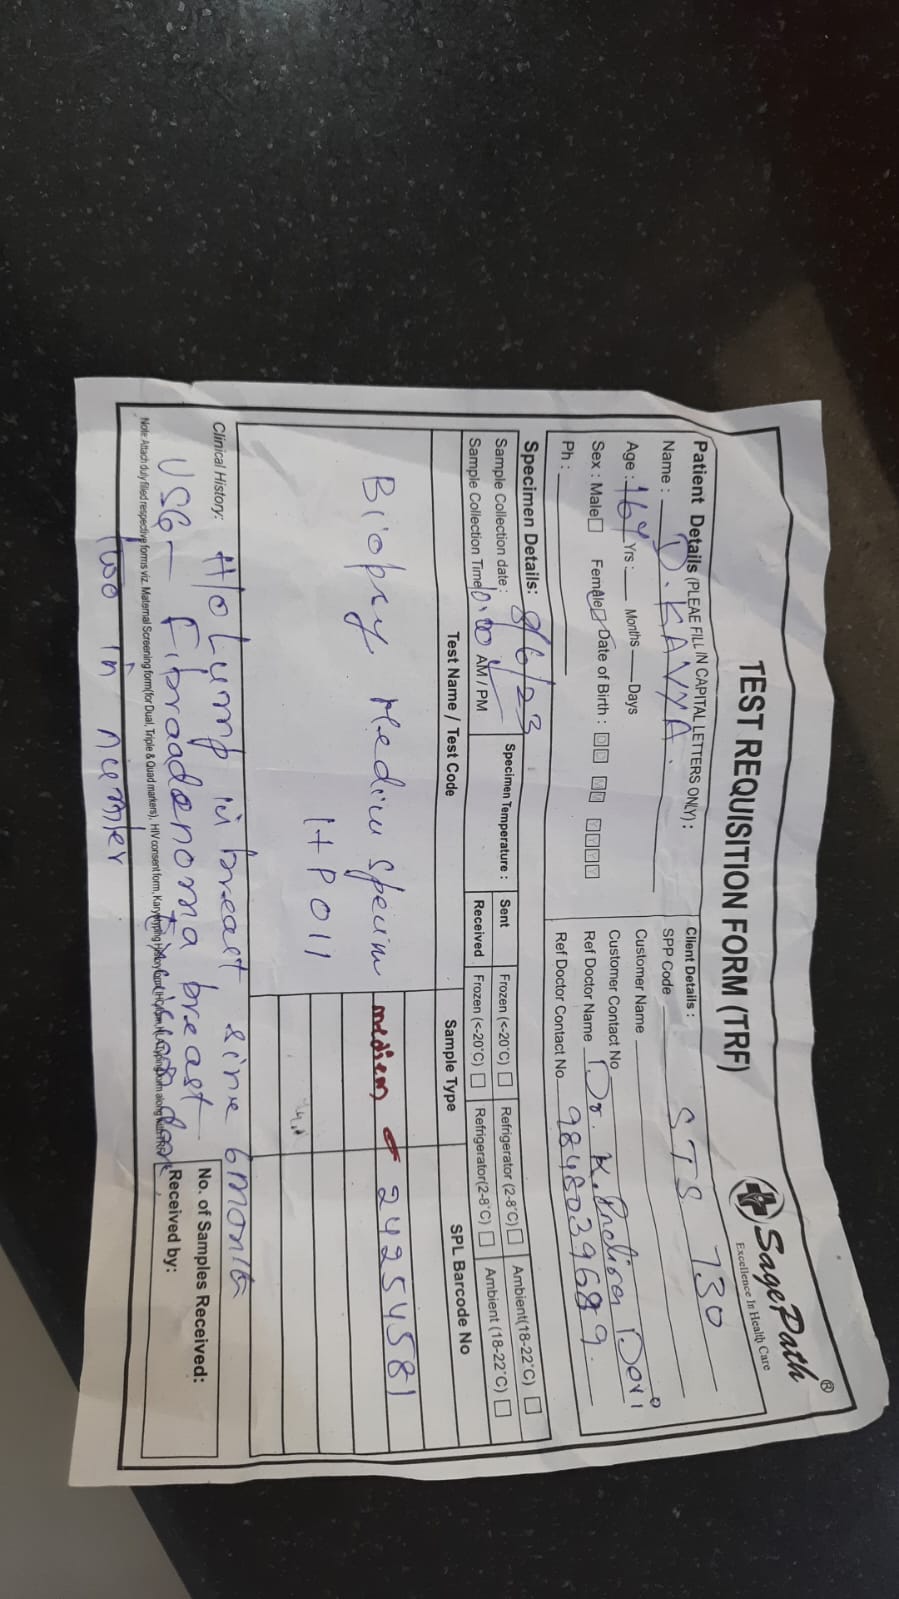 TEST REQUISITION FORM (TRF)
SagePath ®
Excellence In Health Care
Patient Details (PLEAE FILL IN CAPITAL LETTERS ONLY) :
Name : D. KAVYA.
Age : 16 Y Yrs : Months Days
Sex : Male Female Date of Birth : D D M M Y Y Y Y
Ph :
Client Details :
SPP Code STS 730
Customer Name
Customer Contact No
Ref Doctor Name Dr. K. Devi
Ref Doctor Contact No. 9848039689.
Specimen Details:
Sample Collection date : 8/6/23
Sample Collection Time 10:00 AM / PM
Specimen Temperature :
Sent Frozen (<-20°C) Refrigerator (2-8°C) Ambient(18-22°C)
Received Frozen (<-20°C) Refrigerator(2-8°C) Ambient (18-22°C)
Test Name / Test Code Sample Type SPL Barcode No
Biopsy Medium medium 24254581
HP011
Clinical History: H/o Lump in breast since 6 months
USG - Fibroadenoma breast
two in number
Note: Attach duly filled respective forms viz. Maternal Screening form(for Dual, Triple & Quad markers), HIV consent form,
No. of Samples Received:
Received by: